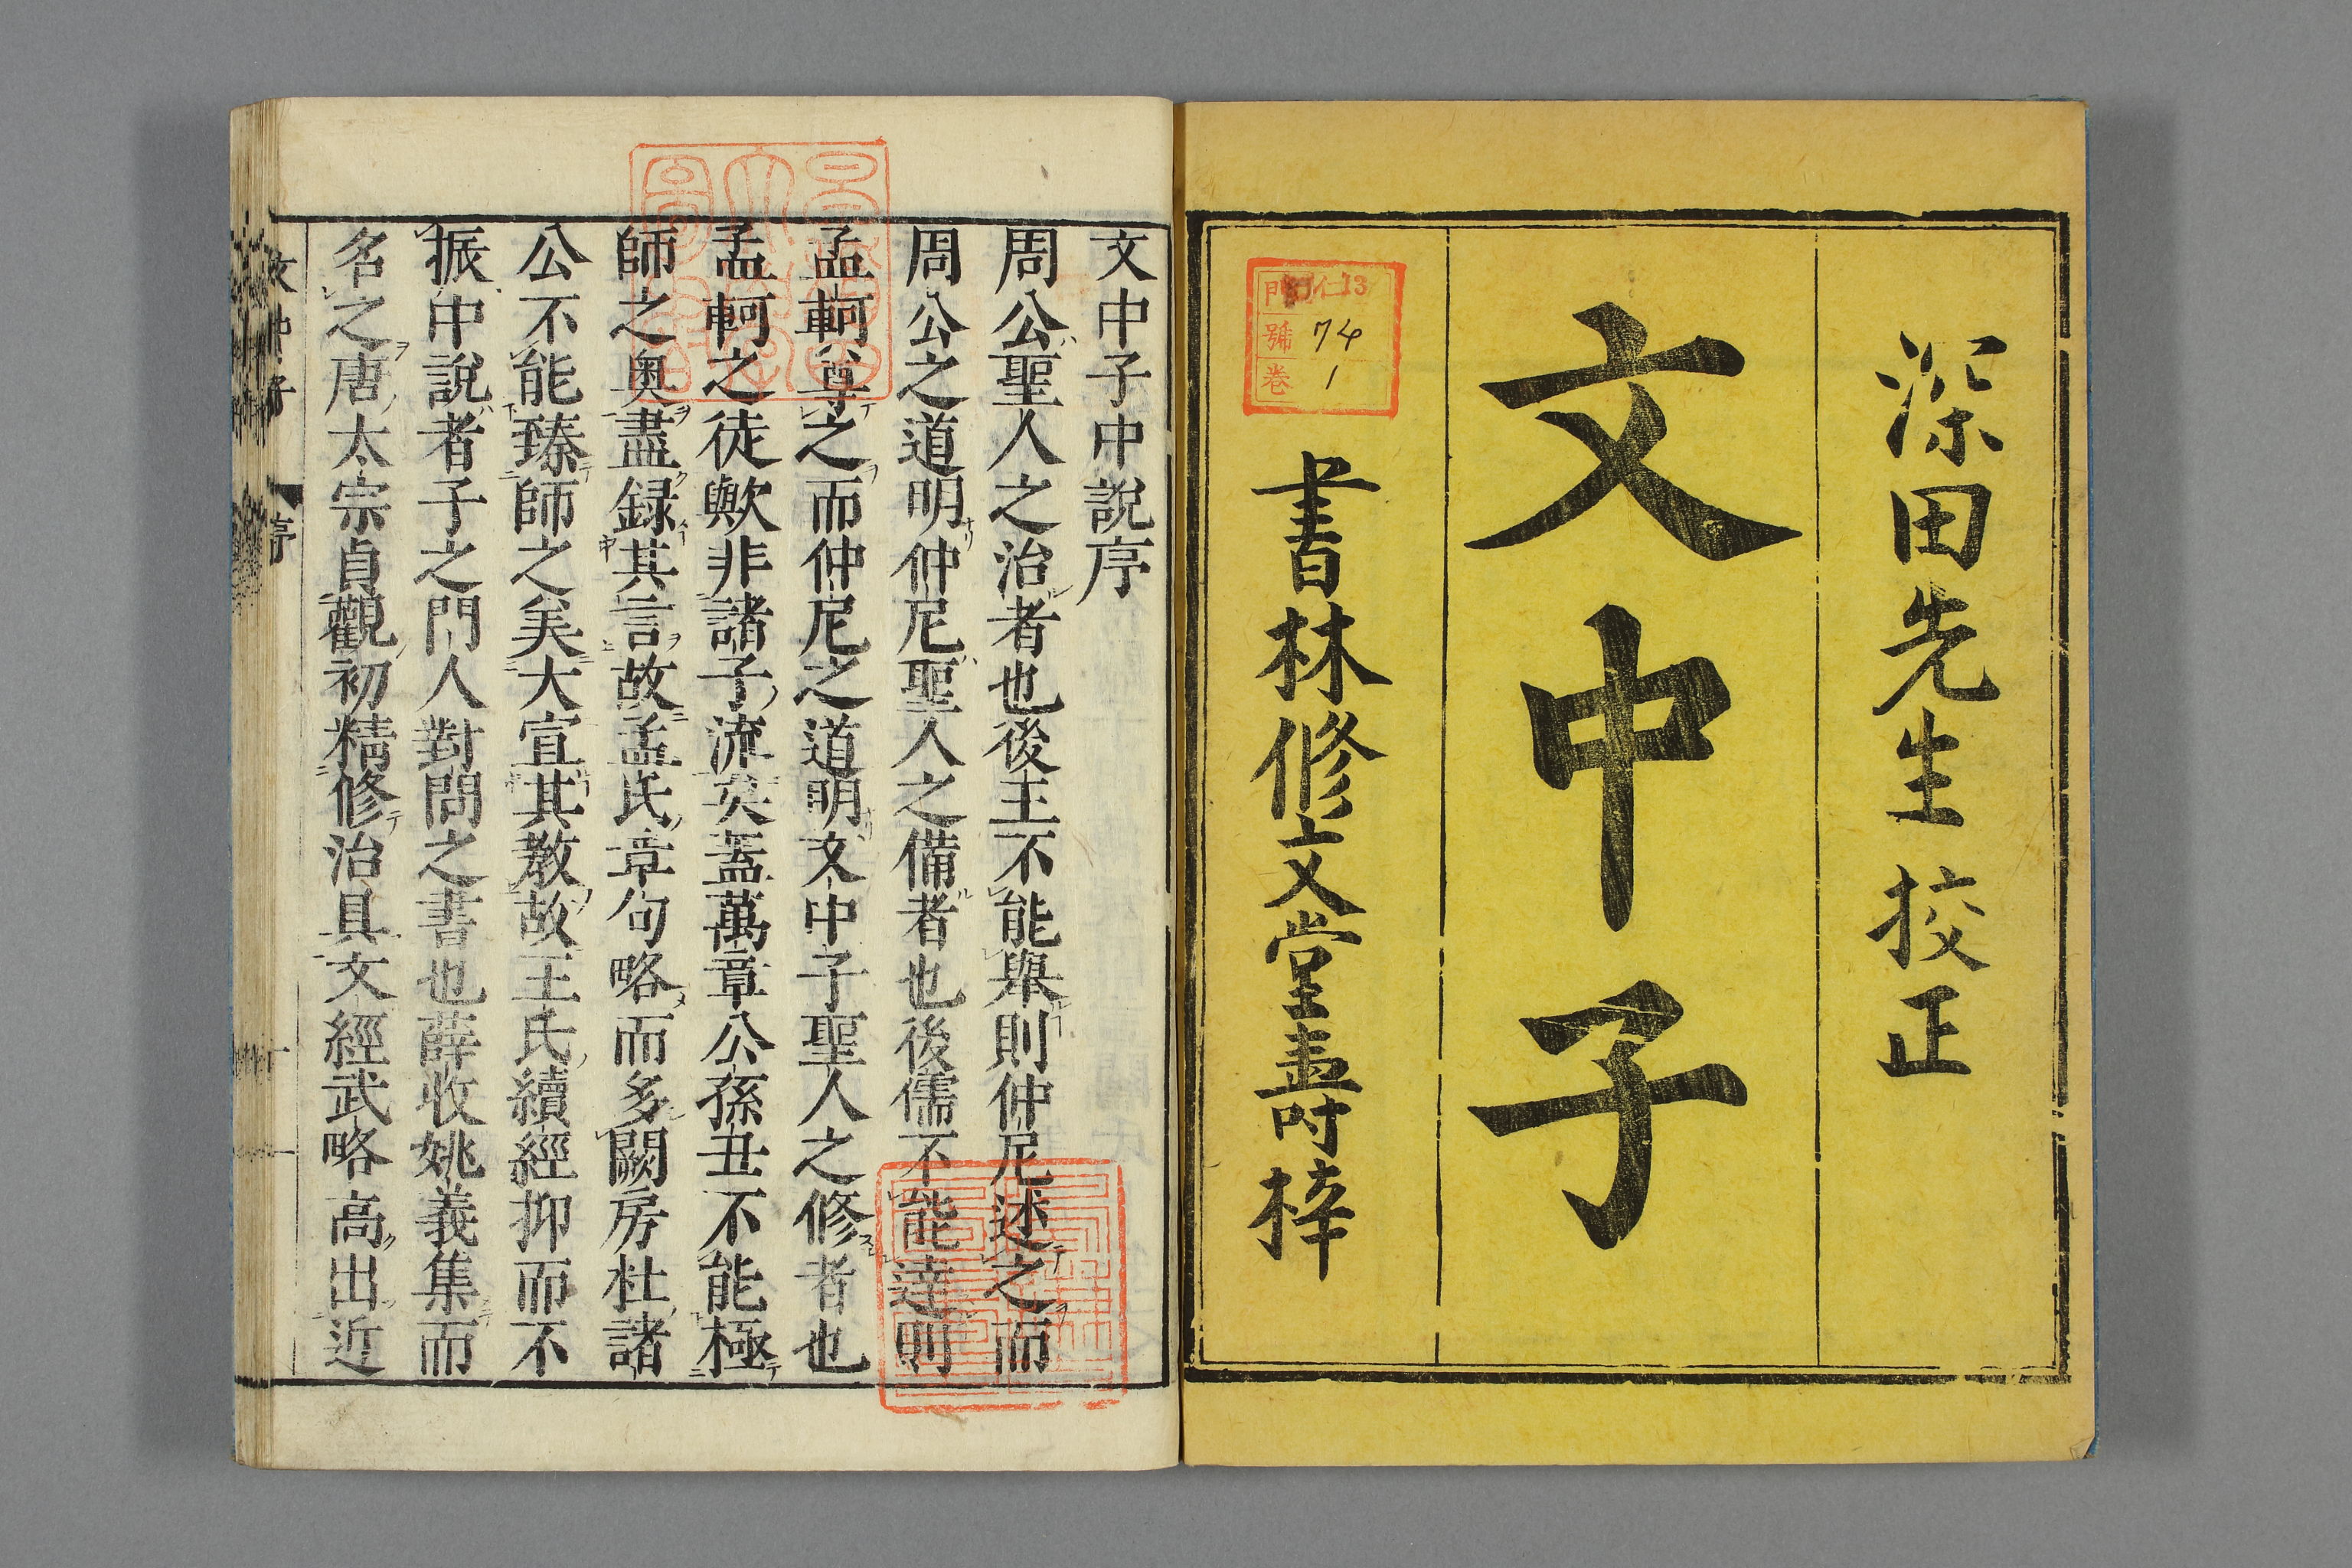 深田先生挍正
文中子
書林修文堂壽梓
門 仁13
號 74
卷 1
文中子中說序
周公聖人之治者也後王不能舉則仲尼述之而
周公之道明仲尼聖人之備者也後儒不能達則
孟軻尊之而仲尼之道明文中子聖人之修者也
孟軻之徒歟非諸子流矣葢萬章公孫丑不能極
師之奧盡録其言故孟氏章句略而多闕房杜諸
公不能臻師之美大宣其教故王氏續經抑而不
振中說者子之門人對問之書也薛收姚義集而
名之唐太宗貞觀初精修治具文經武略高出近
文中子 序 一